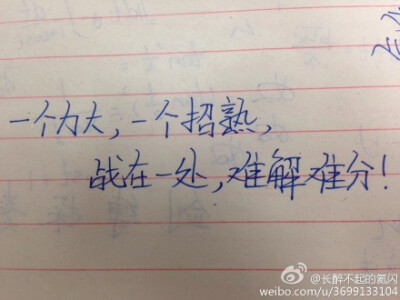 一个力大，一个招熟，
战在一处，难解难分！
@长醉不起的氦闪
weibo.com/u/3699133104